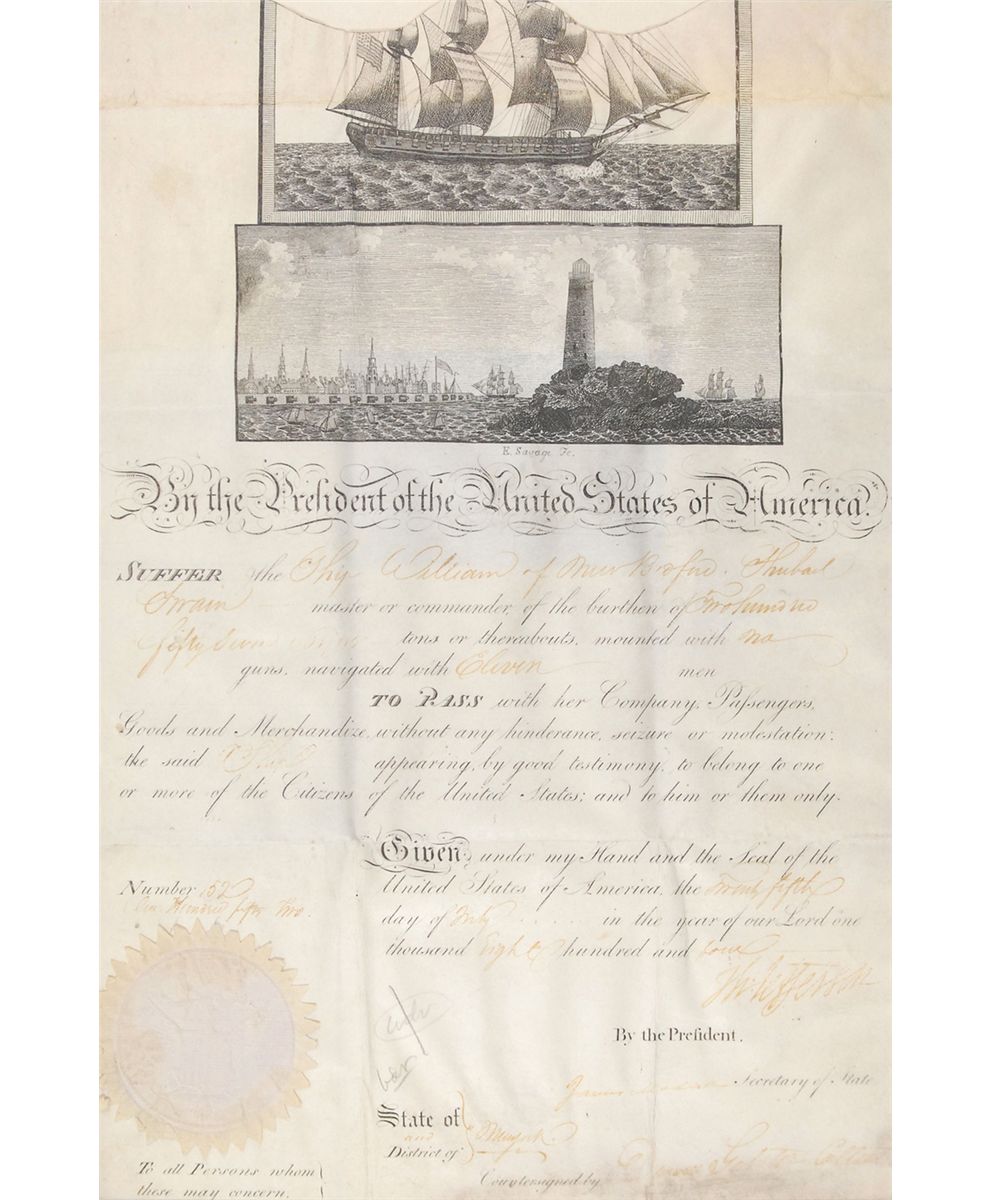 E. Savage Fe.
By the President of the United States of America.
SUFFER the Ship William of New Bedford. Shubael
Swain master or commander, of the burthen of Two hundred
fifty Seven tons or thereabouts, mounted with no
guns, navigated with Eleven men
TO PASS with her Company, Passengers,
Goods and Merchandize, without any hinderance, seizure or molestation;
the said Ship appearing, by good testimony, to belong to one
or more of the Citizens of the United States; and to him or them only.
Given under my Hand and the Seal of the
United States of America, the twenty fifth
day of July in the year of our Lord one
thousand eight hundred and four
Number 152
One Hundred fifty Two.
Th: Jefferson
By the President.
James Madison Secretary of State
State of
and
District of
New York.
Countersigned by
To all Persons whom
these may concern.